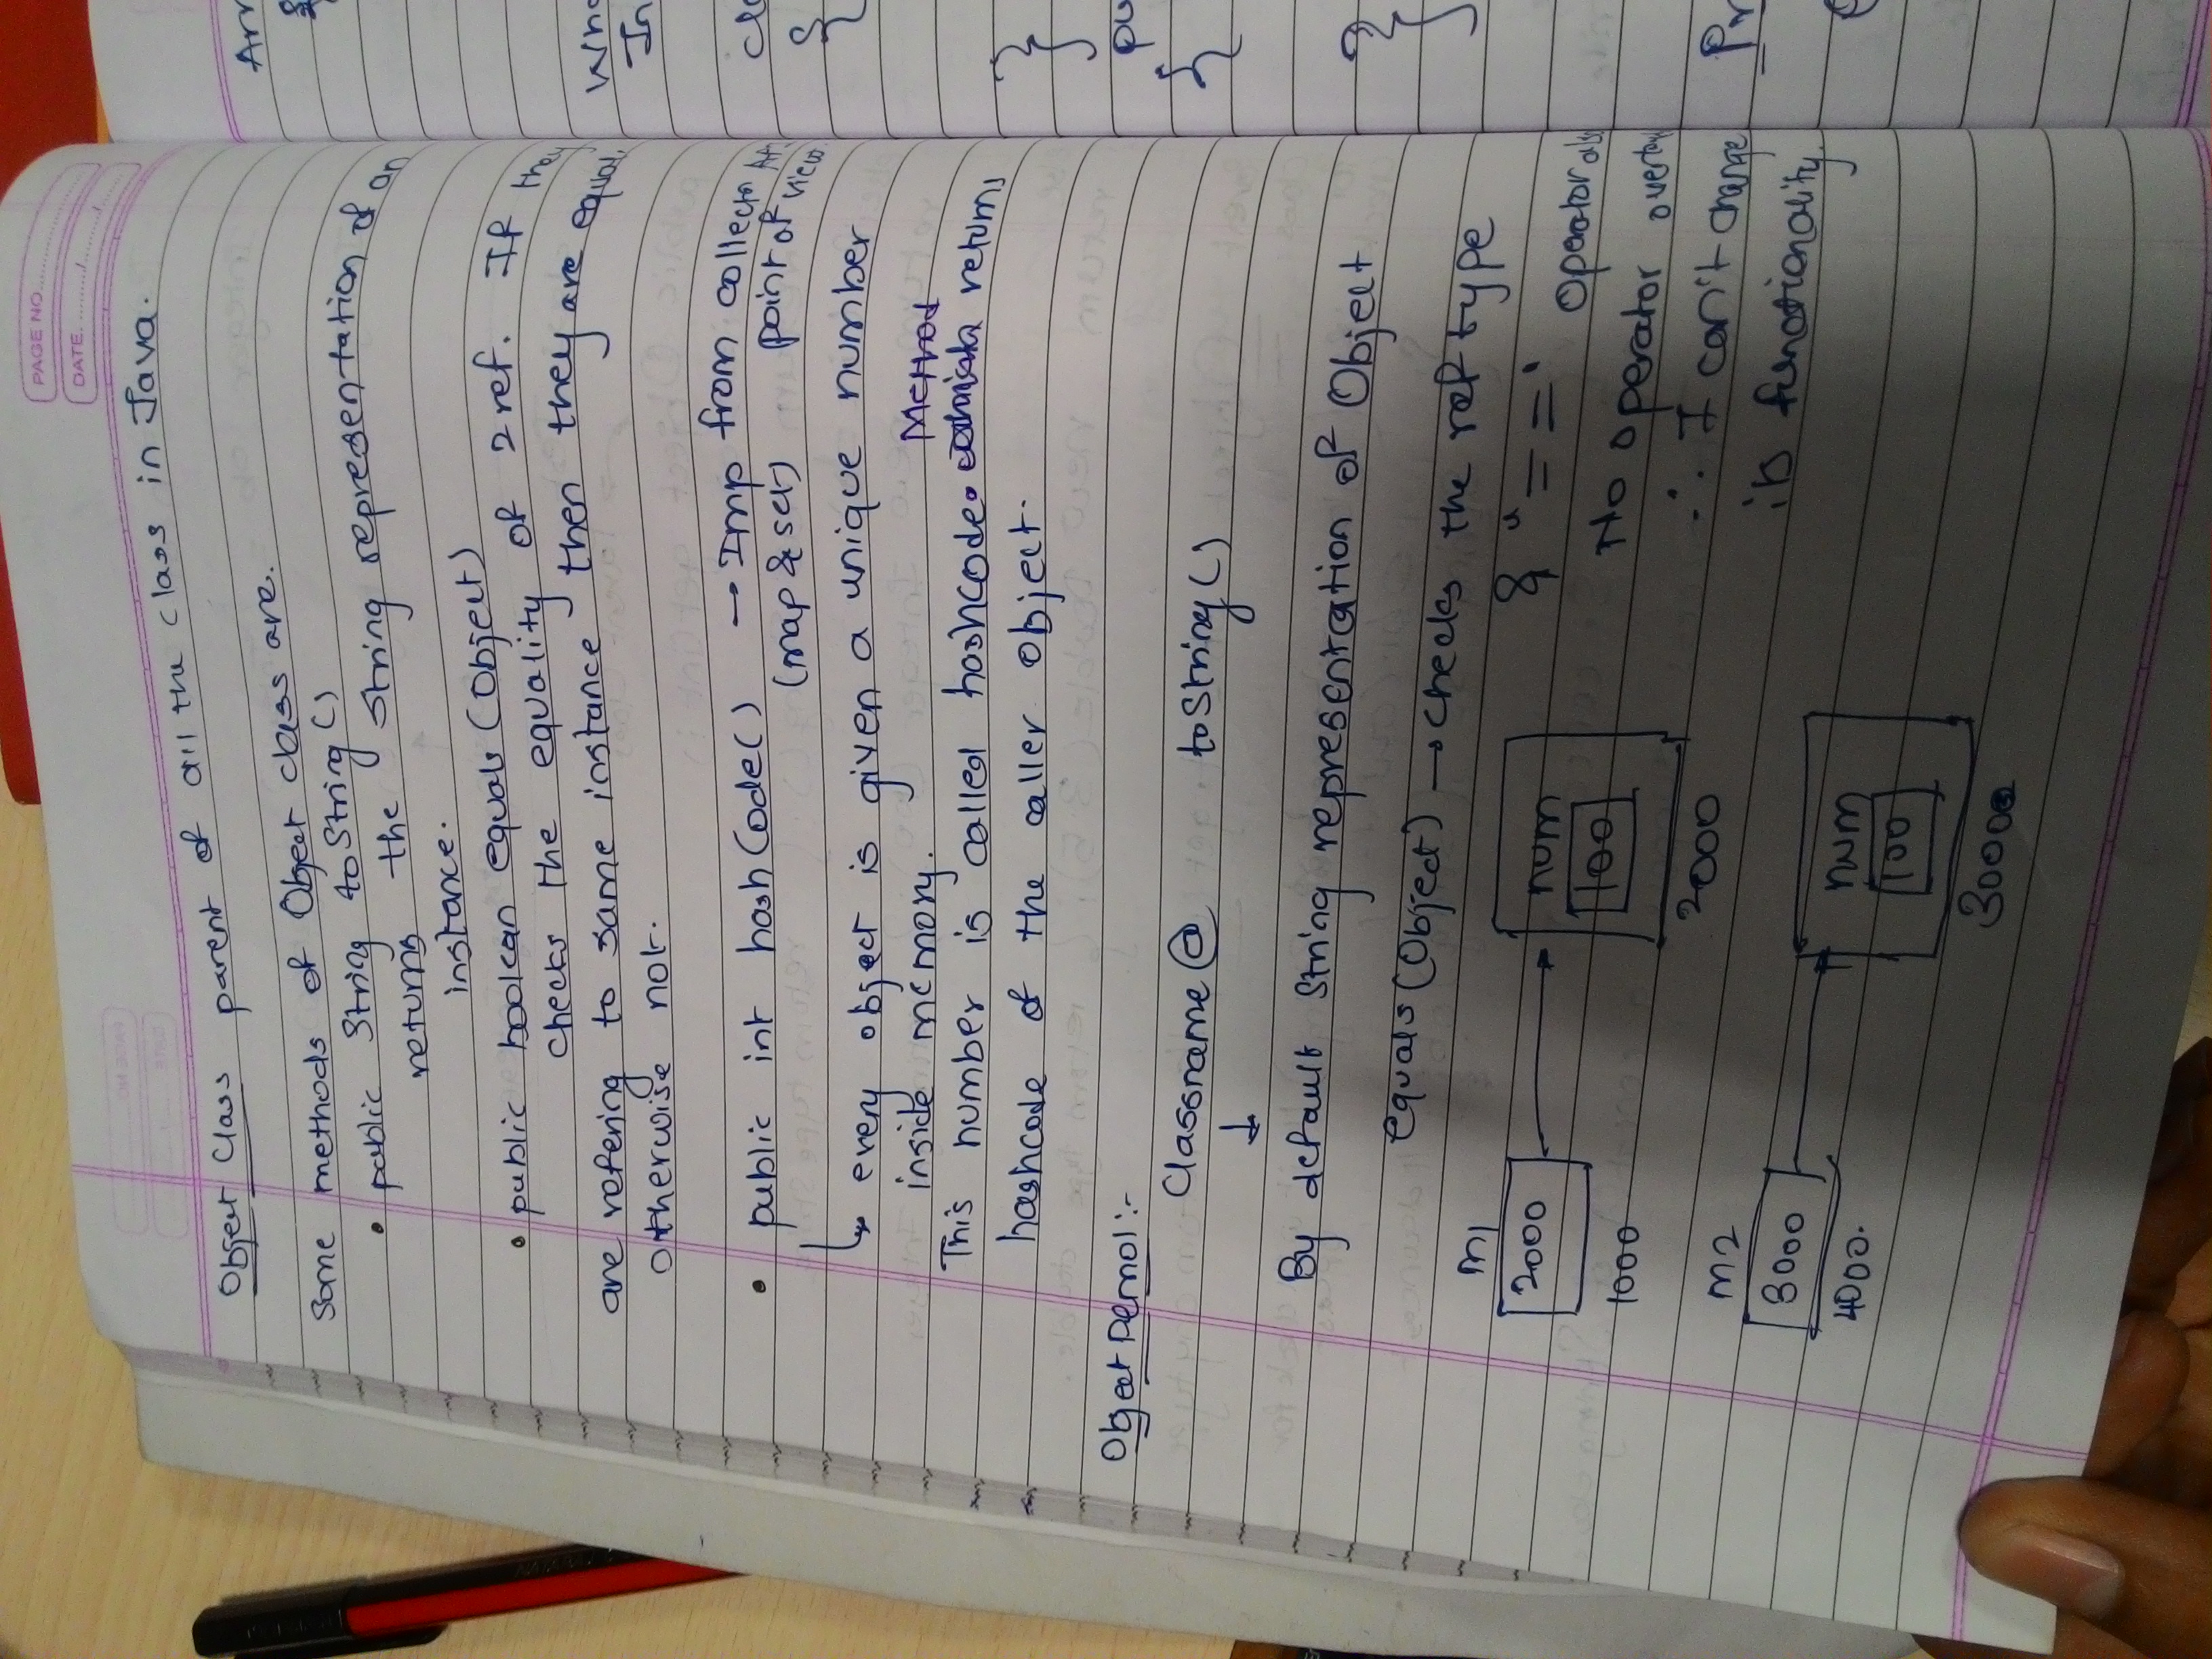 PAGE NO.
DATE. / /
Object Class parent of all the class in Java.
Some methods of Object class are.
• public String toString()
returns the String representation of an
instance.
• public boolean equals (Object)
checks the equality of 2 ref. If they
are refering to same instance then they are equal.
otherwise not.
• public int hashCode() → Imp from collectn
(map & set) point of view.
↳ every object is given a unique number
inside memory.
Method
This number is called hashcode. returns
hashcode of the caller object.
Object Demo1:-
Classname@ toString()
↓
By default String representation of Object
equals(Object) → checks the ref type
& "==" operator also
No operator
∴ I can't change
its functionality.
m1
2000
1000
num
100
2000
m2
3000
4000.
num
100
3000
Arr
Who
In
{
}
pu
{
}
Pr